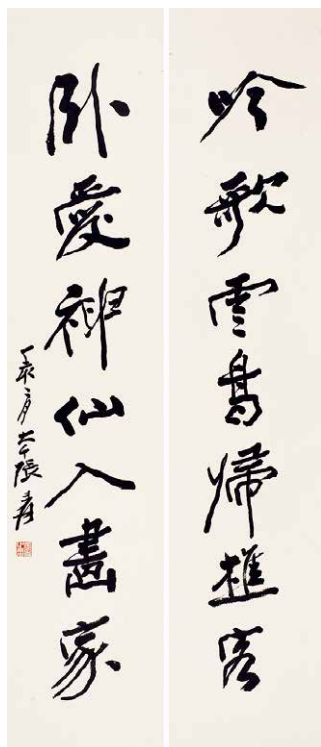 吟歌雲鳥歸樵谷
卧愛神仙入畫家
大千張爰